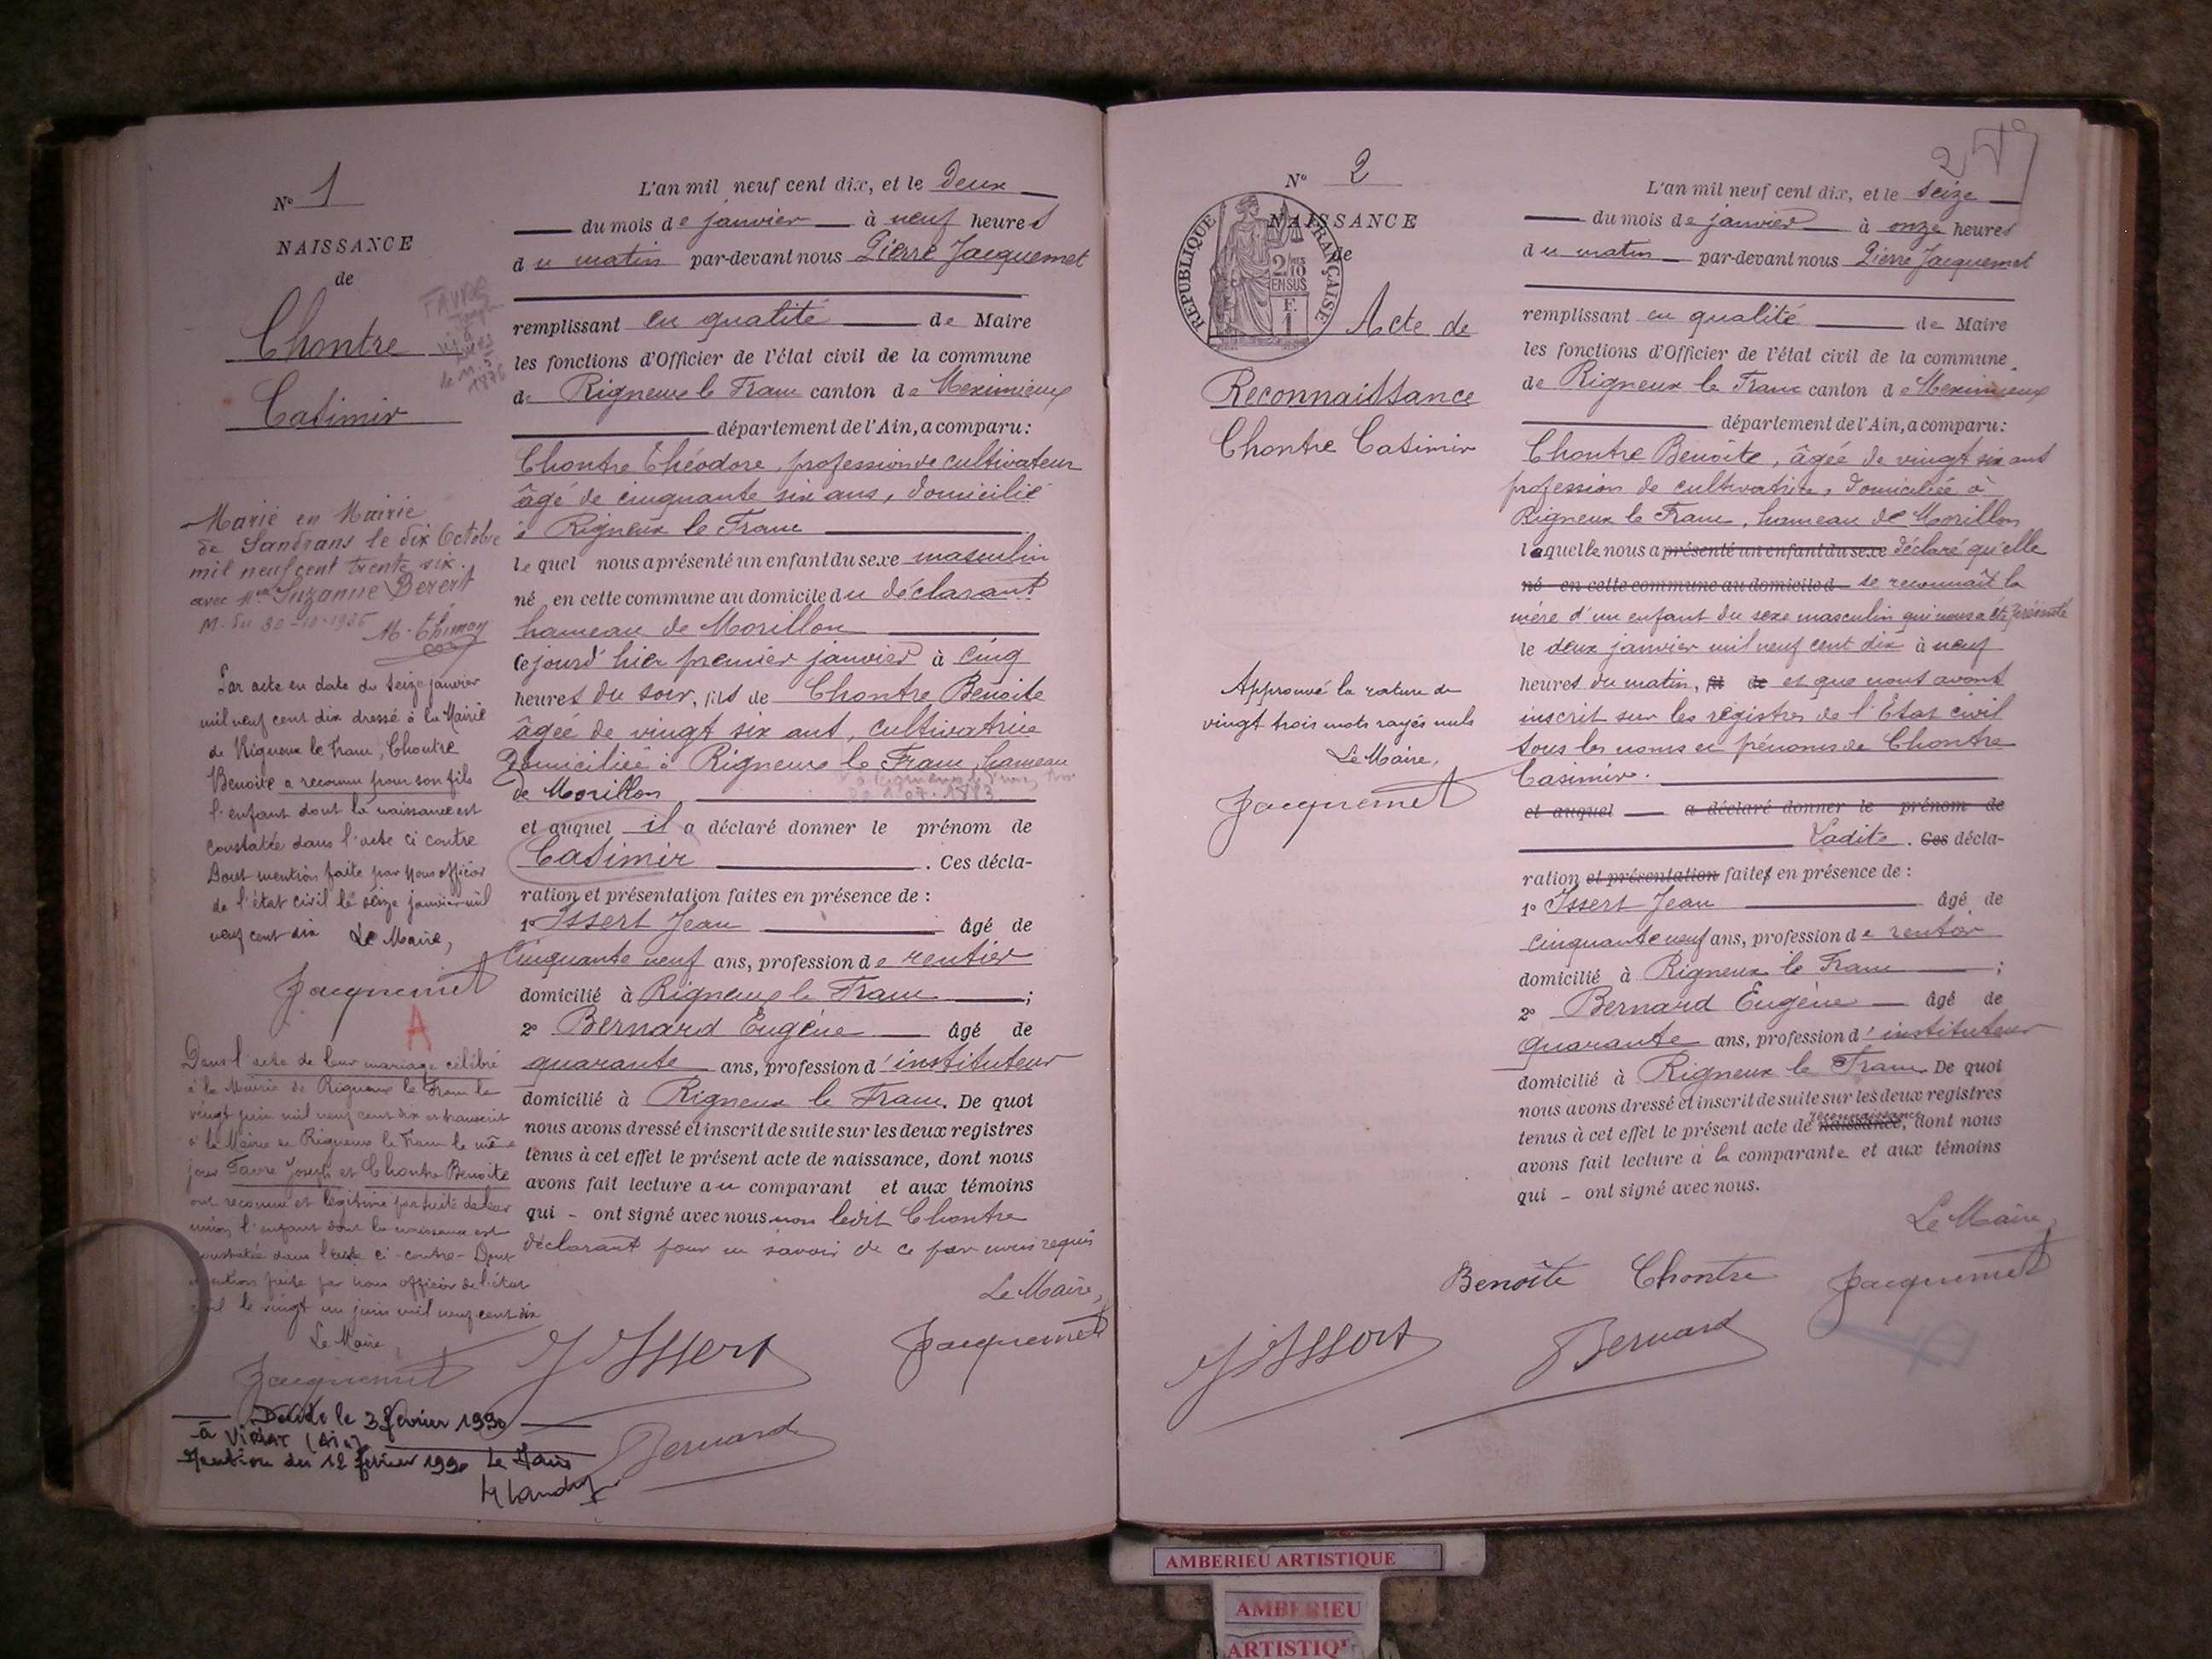 N° 1
NAISSANCE
de
Chontre
Casimir
FAVRE
Marié en Mairie
de Sandrans le dix Octobre
mil neuf cent trente six.
avec Mlle Suzanne
Par acte en date du seize janvier
mil neuf cent dix dressé à la Mairie
de Rigneux le Franc, Chontre
Benoite a reconnu pour son fils
l'enfant dont la naissance est
constatée dans l'acte ci contre
Dont mention faite par nous officier
de l'état civil le seize janvier mil
neuf cent dix Le Maire,
Jacquemet
A
Dans l'acte de leur mariage célébré
à la Mairie de Rigneux le Franc le
vingt juin mil neuf cent dix et transcrit
à la Mairie de Rigneux le Franc le même
jour Favre Joseph et Chontre Benoite
ont reconnu et légitimé par suite de leur
union l'enfant dont la naissance est
constatée dans l'acte ci-contre - Dont
mention faite par nous officier de l'état
civil le vingt un juin mil neuf cent dix
Le Maire,
Jacquemet
Décédé le 3 février 1990
à VIRIAT (Ain)
Mention du 12 février 1990 Le Maire
L'an mil neuf cent dix, et le deux
du mois de janvier à neuf heures
du matin par-devant nous Pierre Jacquemet
remplissant en qualité de Maire
les fonctions d'Officier de l'état civil de la commune
de Rigneux le Franc canton de Meximieux
département de l'Ain, a comparu:
Chontre Théodore, profession de cultivateur
âgé de cinquante six ans, domicilié
à Rigneux le Franc
lequel nous a présenté un enfant du sexe masculin
né en cette commune au domicile du déclarant
hameau de Morillon
cejourd'hier premier janvier à cinq
heures du soir, fils de Chontre Benoite
âgée de vingt six ans, cultivatrice
domiciliée à Rigneux le Franc, hameau
de Morillon
et auquel il a déclaré donner le prénom de
Casimir . Ces décla-
ration et présentation faites en présence de :
1° Issert Jean âgé de
cinquante neuf ans, profession de rentier
domicilié à Rigneux le Franc ;
2° Bernard Eugène âgé de
quarante ans, profession d'instituteur
domicilié à Rigneux le Franc. De quoi
nous avons dressé et inscrit de suite sur les deux registres
tenus à cet effet le présent acte de naissance, dont nous
avons fait lecture au comparant et aux témoins
qui - ont signé avec nous non ledit Chontre
déclarant pour ne savoir de ce par nous requis
Le Maire,
J Issert Jacquemet
Bernard
N° 2
NAISSANCE
de
RÉPUBLIQUE FRANÇAISE
2/10
EN SUS
F.
1
Acte de
Reconnaissance
Chontre Casimir
Approuvé la rature de
vingt trois mots rayés nuls
Le Maire,
Jacquemet
L'an mil neuf cent dix, et le seize
du mois de janvier à onze heures
du matin par-devant nous Pierre Jacquemet
remplissant en qualité de Maire
les fonctions d'Officier de l'état civil de la commune
de Rigneux le Franc canton de Meximieux
département de l'Ain, a comparu:
Chontre Benoite, âgée de vingt six ans
profession de cultivatrice, domiciliée à
Rigneux le Franc, hameau de Morillon
laquelle nous a présenté un enfant du sexe déclaré qu'elle
né en cette commune au domicile d se reconnaît la
mère d'un enfant du sexe masculin qui nous a été présenté
le deux janvier mil neuf cent dix à neuf
heures du matin, et que nous avons
inscrit sur les régistres de l'Etat civil
sous les noms et prénoms de Chontre
Casimir.
et auquel a déclaré donner le prénom de
Ladite . Ces décla-
ration et présentation faites en présence de :
1° Issert Jean âgé de
cinquante neuf ans, profession de rentier
domicilié à Rigneux le Franc ;
2° Bernard Eugène âgé de
quarante ans, profession d'instituteur
domicilié à Rigneux le Franc. De quoi
nous avons dressé et inscrit de suite sur les deux registres
tenus à cet effet le présent acte de naissance, reconnaissance dont nous
avons fait lecture à la comparante et aux témoins
qui - ont signé avec nous.
Le Maire,
Benoîte Chontre Jacquemet
J Issert Bernard
AMBERIEU ARTISTIQUE
AMBERIEU
ARTISTIQ